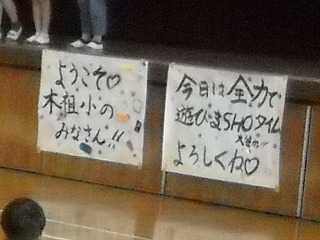 ようこそ♡
木祖小の
みなさん!!
今日は全力で
遊びまSHOタイム
よろしくね♡